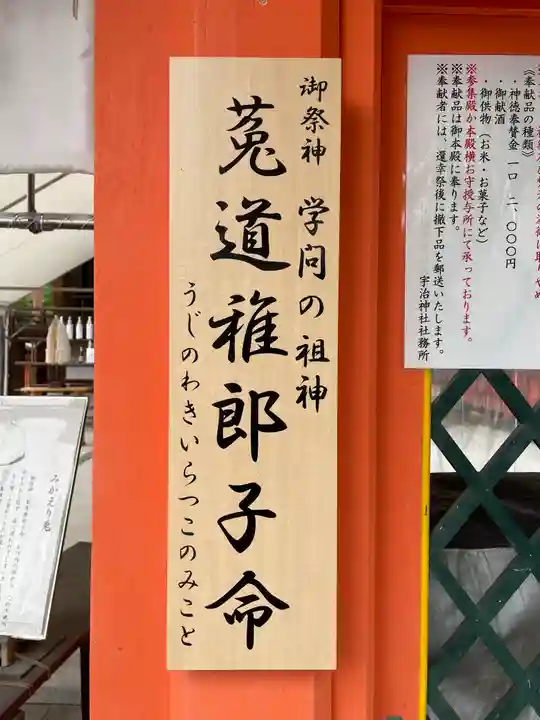 《奉献品の種類》
・神徳奉賛金 一口 二、〇〇〇円
・御献酒
・御供物（お米・お菓子など）
※参集殿か本殿横お守授与所にて承っております。
※奉献品は御本殿に奉ります。
※奉献者には、還幸祭後に撤下品を郵送いたします。
宇治神社社務所
御祭神 学問の祖神
菟道稚郎子命
うじのわきいらつこのみこと
みかえり兎